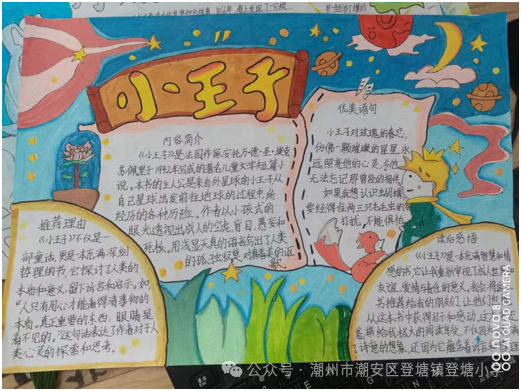 小王子
内容简介
《小王子》是法国作家安托万·德·圣·埃克
苏佩里于1942年完成的著名儿童文学短篇小
说。本书的主人公是来自外星球的小王子从
自己星球出发前往地球的过程中,所
经历的各种历险。作者以小孩式的
眼光透视出成人的空洞,盲目,愚妄和
死板,用浅显天真的语言写出了人类
的孤独寂寞
优美语句
小王子对玫瑰的眷恋,
仿佛一颗璀璨的星星,永
远照亮他的心灵,令他
无法忘记那曾经的相伴。
如果你想认识蝴蝶
要经得住两三只毛虫的
打扰,不能惧怕
推荐理由
《小王子》不仅是一
部童话,更是本充满深刻
哲理的书,它探讨了人类的
本质和意义,留下许多和启示。如
“人只有用心才能看得清事物的
本质,真正重要的东西,眼睛是
看不见的。”这句话表达了作者对于人
类心灵的探索和思考。
读后感悟
《小王子》是一本充满智慧和情
感的书,它让我重新审视了成人世界
友谊,爱情
书推荐给我的朋友们,让他们也
从这本书中获得启示和感动,这
能带给我极大的阅读享受,不仅因
了诗意的想象,还因为它蕴含着
公众号·潮州市潮安区登塘镇登塘小学
OO novo
AI QUAD CAMERA